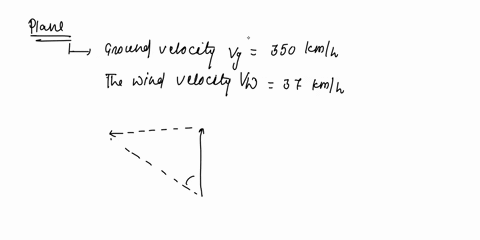 Plane
Ground velocity Vg = 350 km/h
The wind velocity Vw = 37 km/h